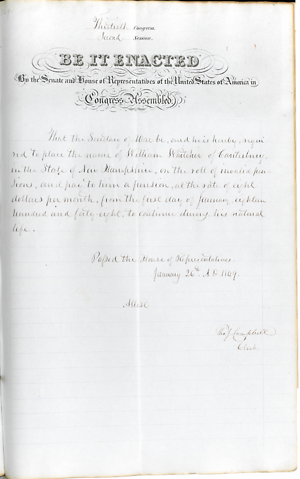 Thirtieth Congress
Second Session
BE IT ENACTED
By the Senate and House of Representatives of the United States of America in
Congress Assembled,
That the Secretary of War be, and he is hereby, requi
red to place the name of William of Canterbury,
in the State of New Hampshire, on the roll of invalid pen
sions, and pay to him a pension, at the rate of eight
dollars per month, from the first day of January, eighteen
hundred and forty eight, to continue during his natural
life.
Passed the House of Representatives
January 26th A.D. 1849.
Attest
Tho. J. Campbell
Clerk